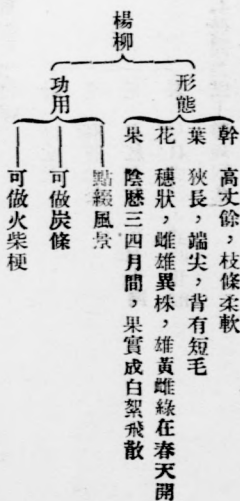 楊柳
形態
幹 高丈餘,枝條柔軟
葉 狹長,端尖,背有短毛
花 穗狀,雌雄異株,雄黃雌綠在春天開
果 陰歷三四月間,果實成白絮飛散
功用
點綴風景
可做炭條
可做火柴梗